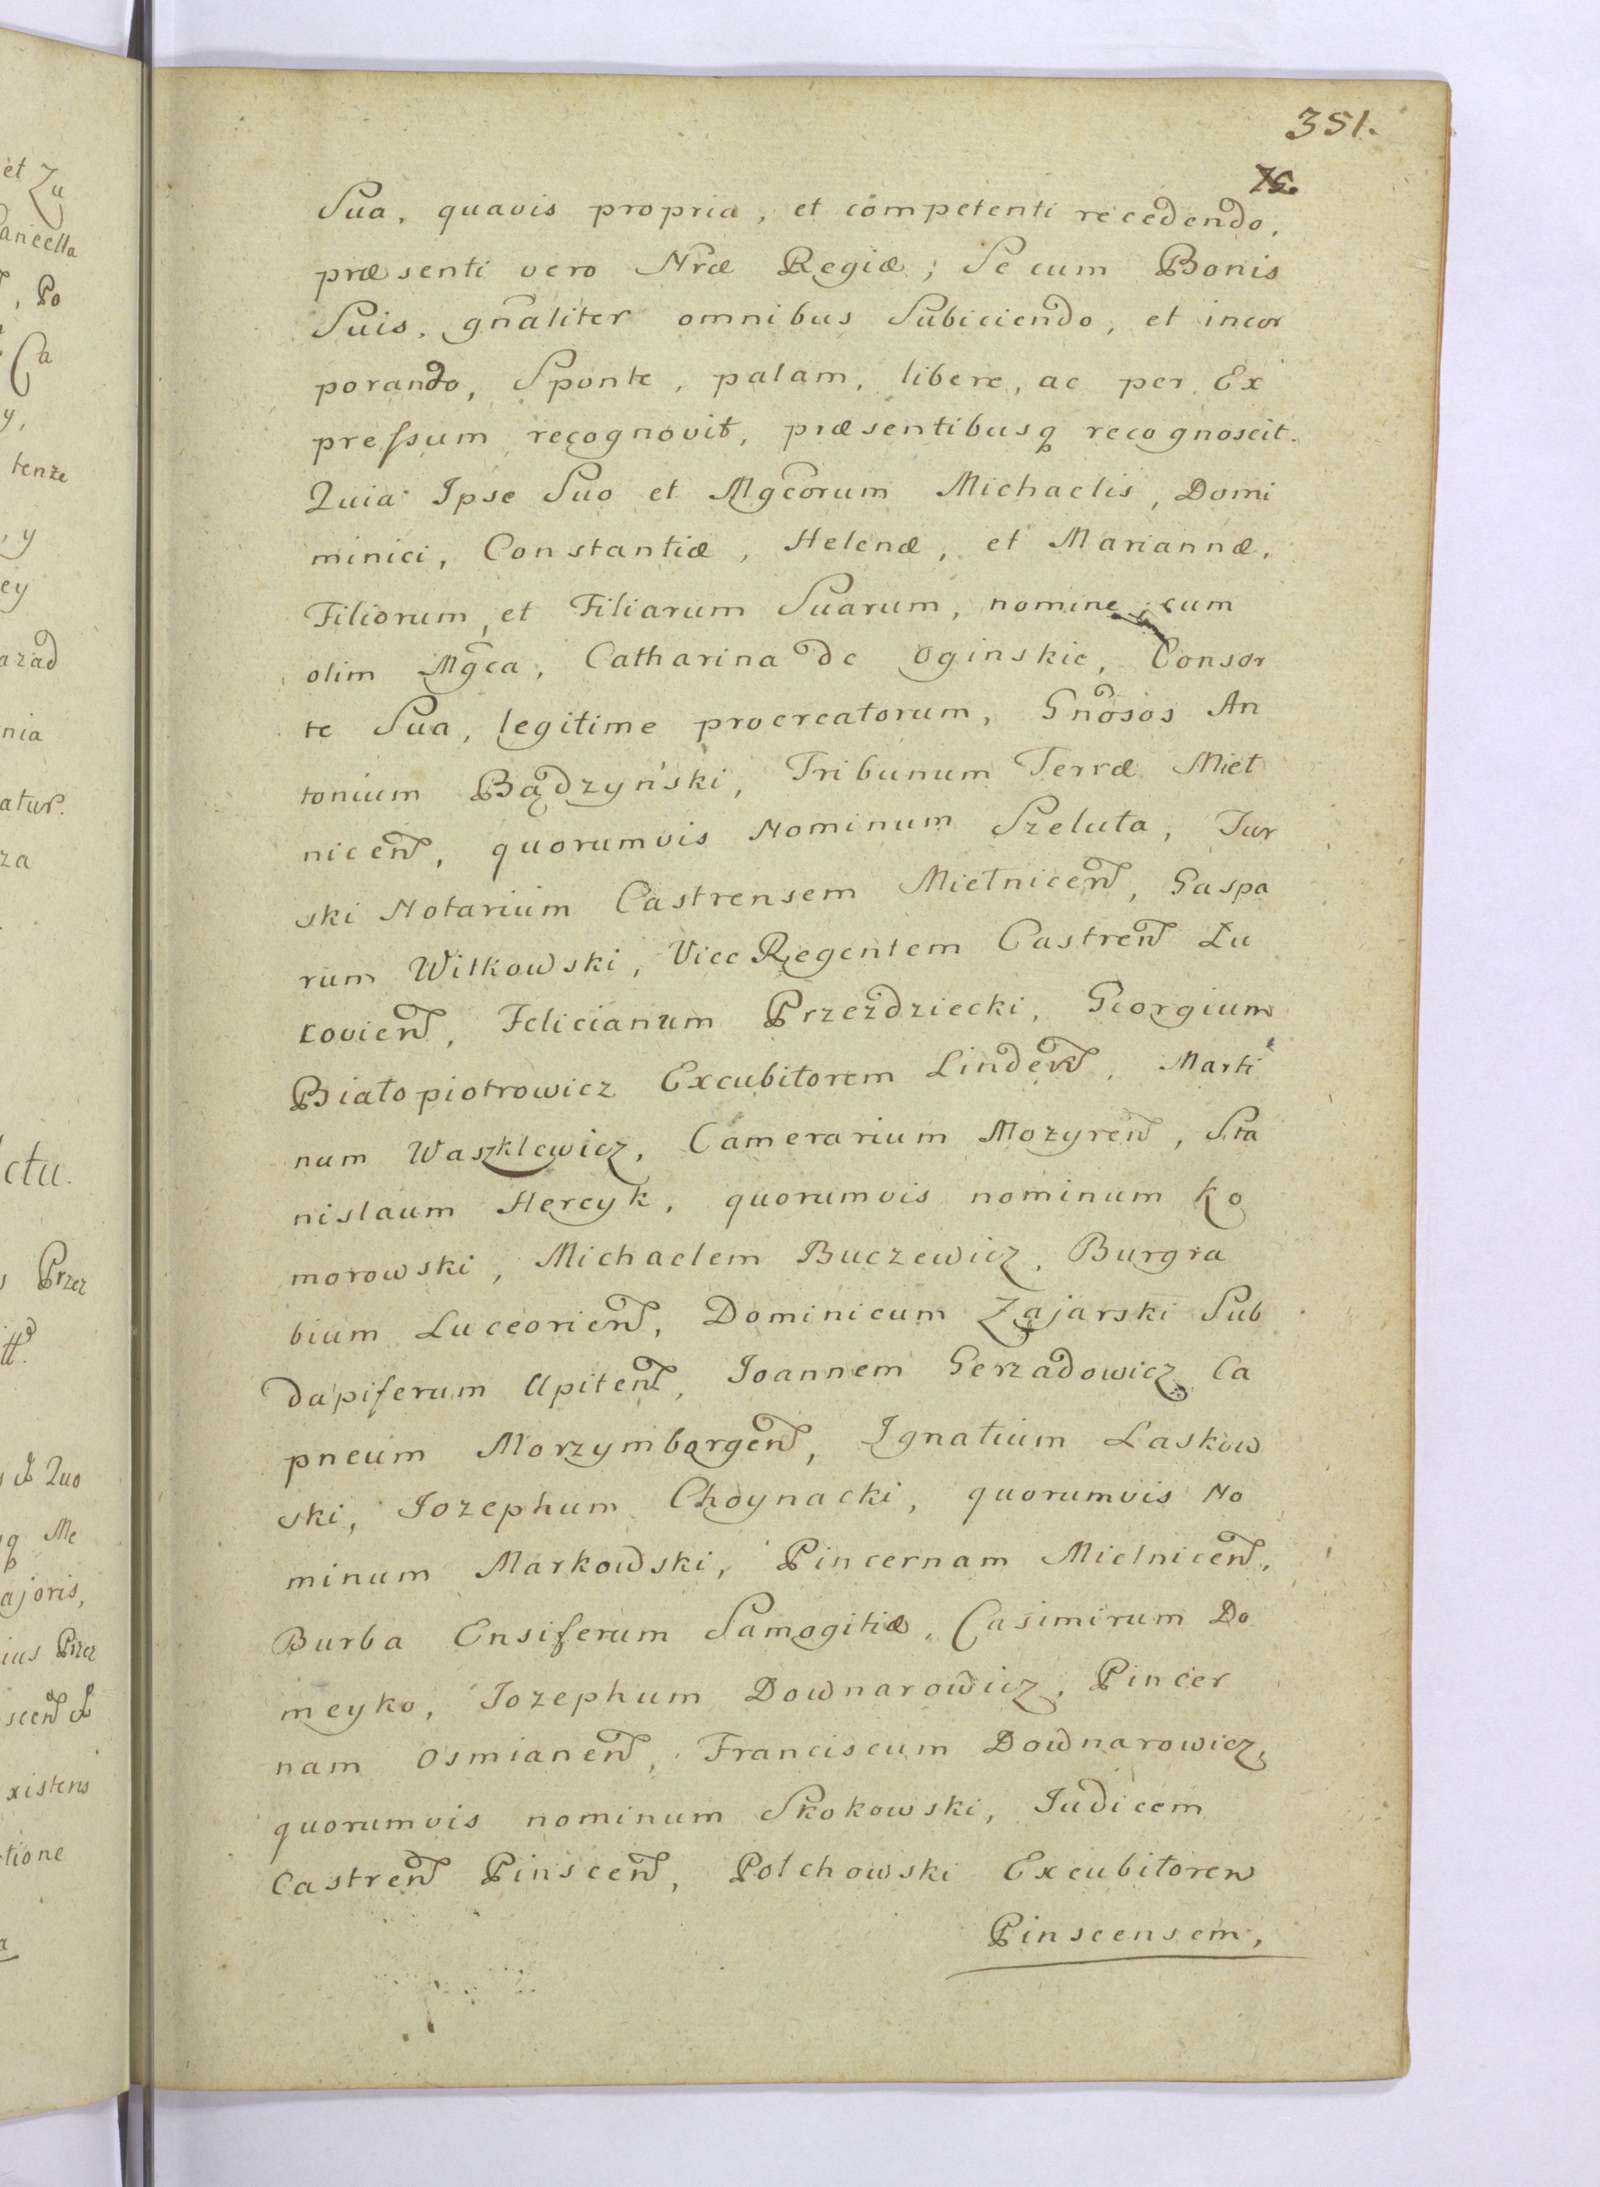 351.
75.
Sua, quavis propria, et competenti recedendo,
præsenti vero Nræ Regiæ; Se cum Bonis
Suis, gnaliter omnibus Subiciendo, et incor
porando, Sponte, palam, libere, ac per Ex
pressum recognovit, præsentibusq recognoscit.
Quia Ipse Suo et Mgcorum Michaelis, Domi
minici, Constantiæ, Helenæ, et Mariannæ,
Filiorum, et Filiarum Suarum, nomine, cum
olim Mgca, Catharina de Oginskie, Consor
te Sua, legitime procreatorum, Gnosos An
tonium Bądzyński, Tribunum Terræ Miel
nicen, quorumvis Nominum Szeluta, Tur
ski Notarium Castrensem Mielnicen, Gaspa
rum Witkowski, Vice Regentem Castren Łu
kovien, Felicianum Przezdziecki, Georgium
Białopiotrowicz Excubitorem Linden, Marti
num Waszklewicz, Camerarium Mozyren, Sta
nislaum Hercyk, quorumvis nominum Ko
morowski, Michaelem Buczewicz, Burgra
bium Luceorien, Dominicum Zajarski Sub
dapiferum Upiten, Joannem Gerzadowicz Ca
pneum Morzymborgen, Ignatium Laskow
ski, Jozephum Choynacki, quorumvis No
minum Markowski, Pincernam Mielnicen,
Burba Ensiferum Samogitiæ, Casimirum Do
meyko, Jozephum Downarowicz, Pincer
nam Osmianen, Franciscum Downarowicz,
quorumvis nominum Skokowski, Judicem
Castren Pinscen, Połchowski Excubitorem
Pinscensem,